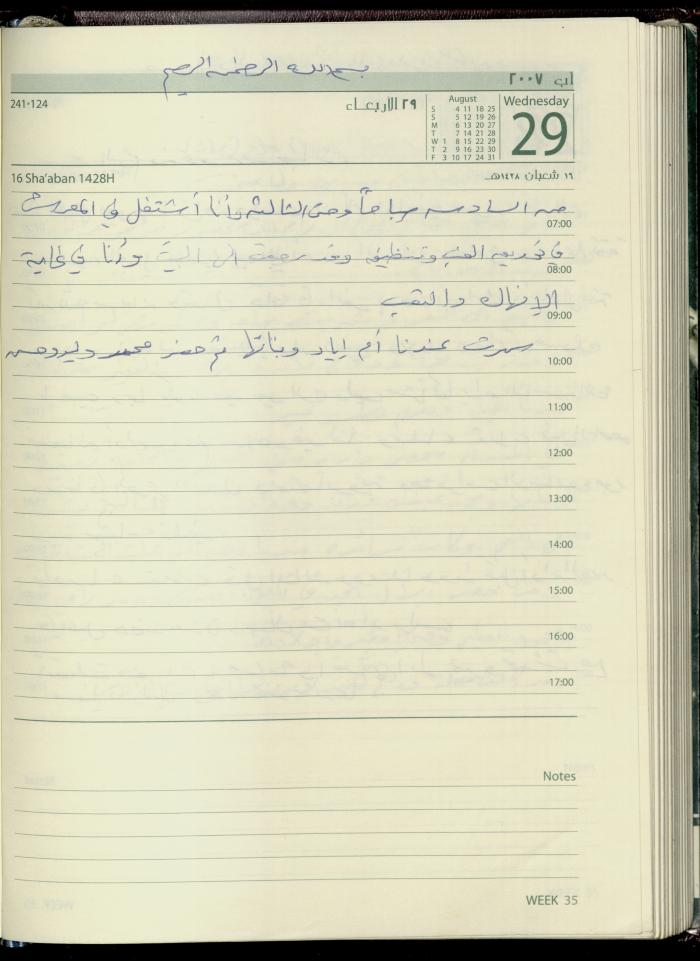 بسم الله الرحمن الرحيم
آب ٢٠٠٧
241-124
٢٩ الأربعاء
August
S 4 11 18 25
S 5 12 19 26
M 6 13 20 27
T 7 14 21 28
W 1 8 15 22 29
T 2 9 16 23 30
F 3 10 17 24 31
Wednesday
29
16 Sha'aban 1428H
١٦ شعبان ١٤٢٨هـ
من السادسة صباحاً وحتى الثالثة وأنا أشتغل في المعرش
07:00
في تجريد العنب وتنظيفه وقد رجعت إلى البيت وأنا في غاية
08:00
الإنهاك والتعب
09:00
سهرت عندنا أم إياد وبناتها ثم حضر محمد وليد وحسن
10:00
11:00
12:00
13:00
14:00
15:00
16:00
17:00
Notes
WEEK 35